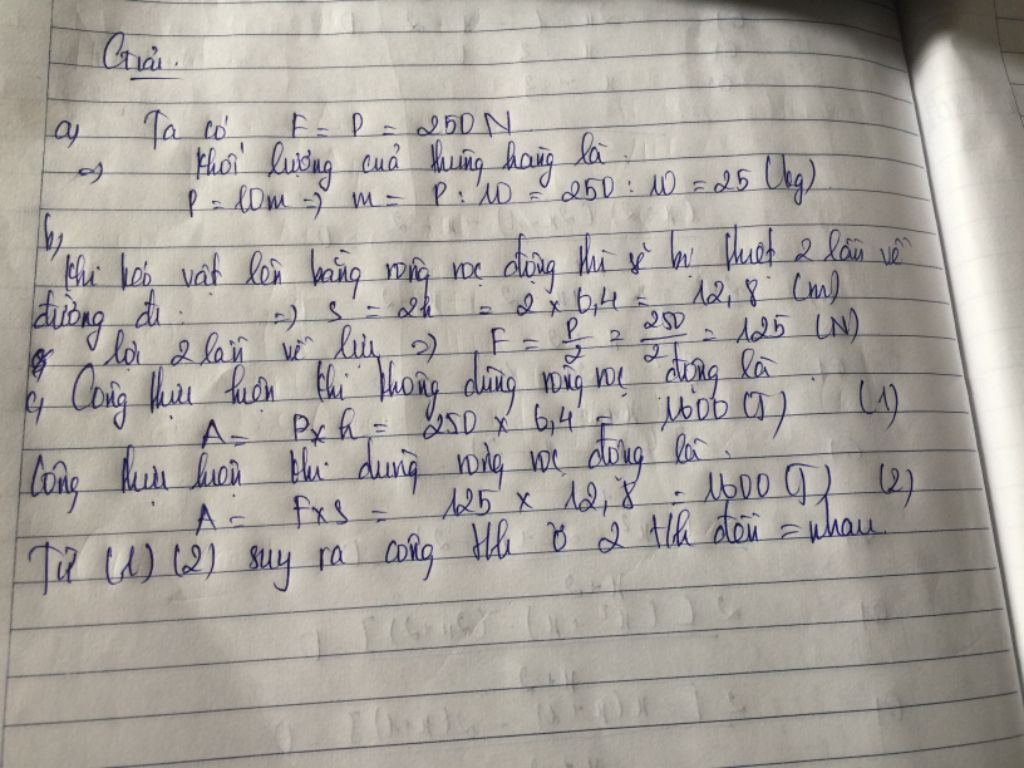 Giải.
a, Ta có F = P = 250 N
=> Khối lượng của thùng hàng là:
P = 10m => m = P : 10 = 250 : 10 = 25 (kg)
b,
Khi kéo vật lên bằng ròng rọc động thì sẽ bị thiệt 2 lần về
đường đi: => s = 2h = 2 x 6,4 = 12,8 (m)
lợi 2 lần về lực => F = P/2 = 250/2 = 125 (N)
c, Công thực hiện khi không dùng ròng rọc động là
A = P x h = 250 x 6,4 = 1600 (J) (1)
Công thực hiện khi dùng ròng rọc động là.
A = F x s = 125 x 12,8 = 1600 (J) (2)
Từ (1) (2) suy ra công th ở 2 th đều = nhau